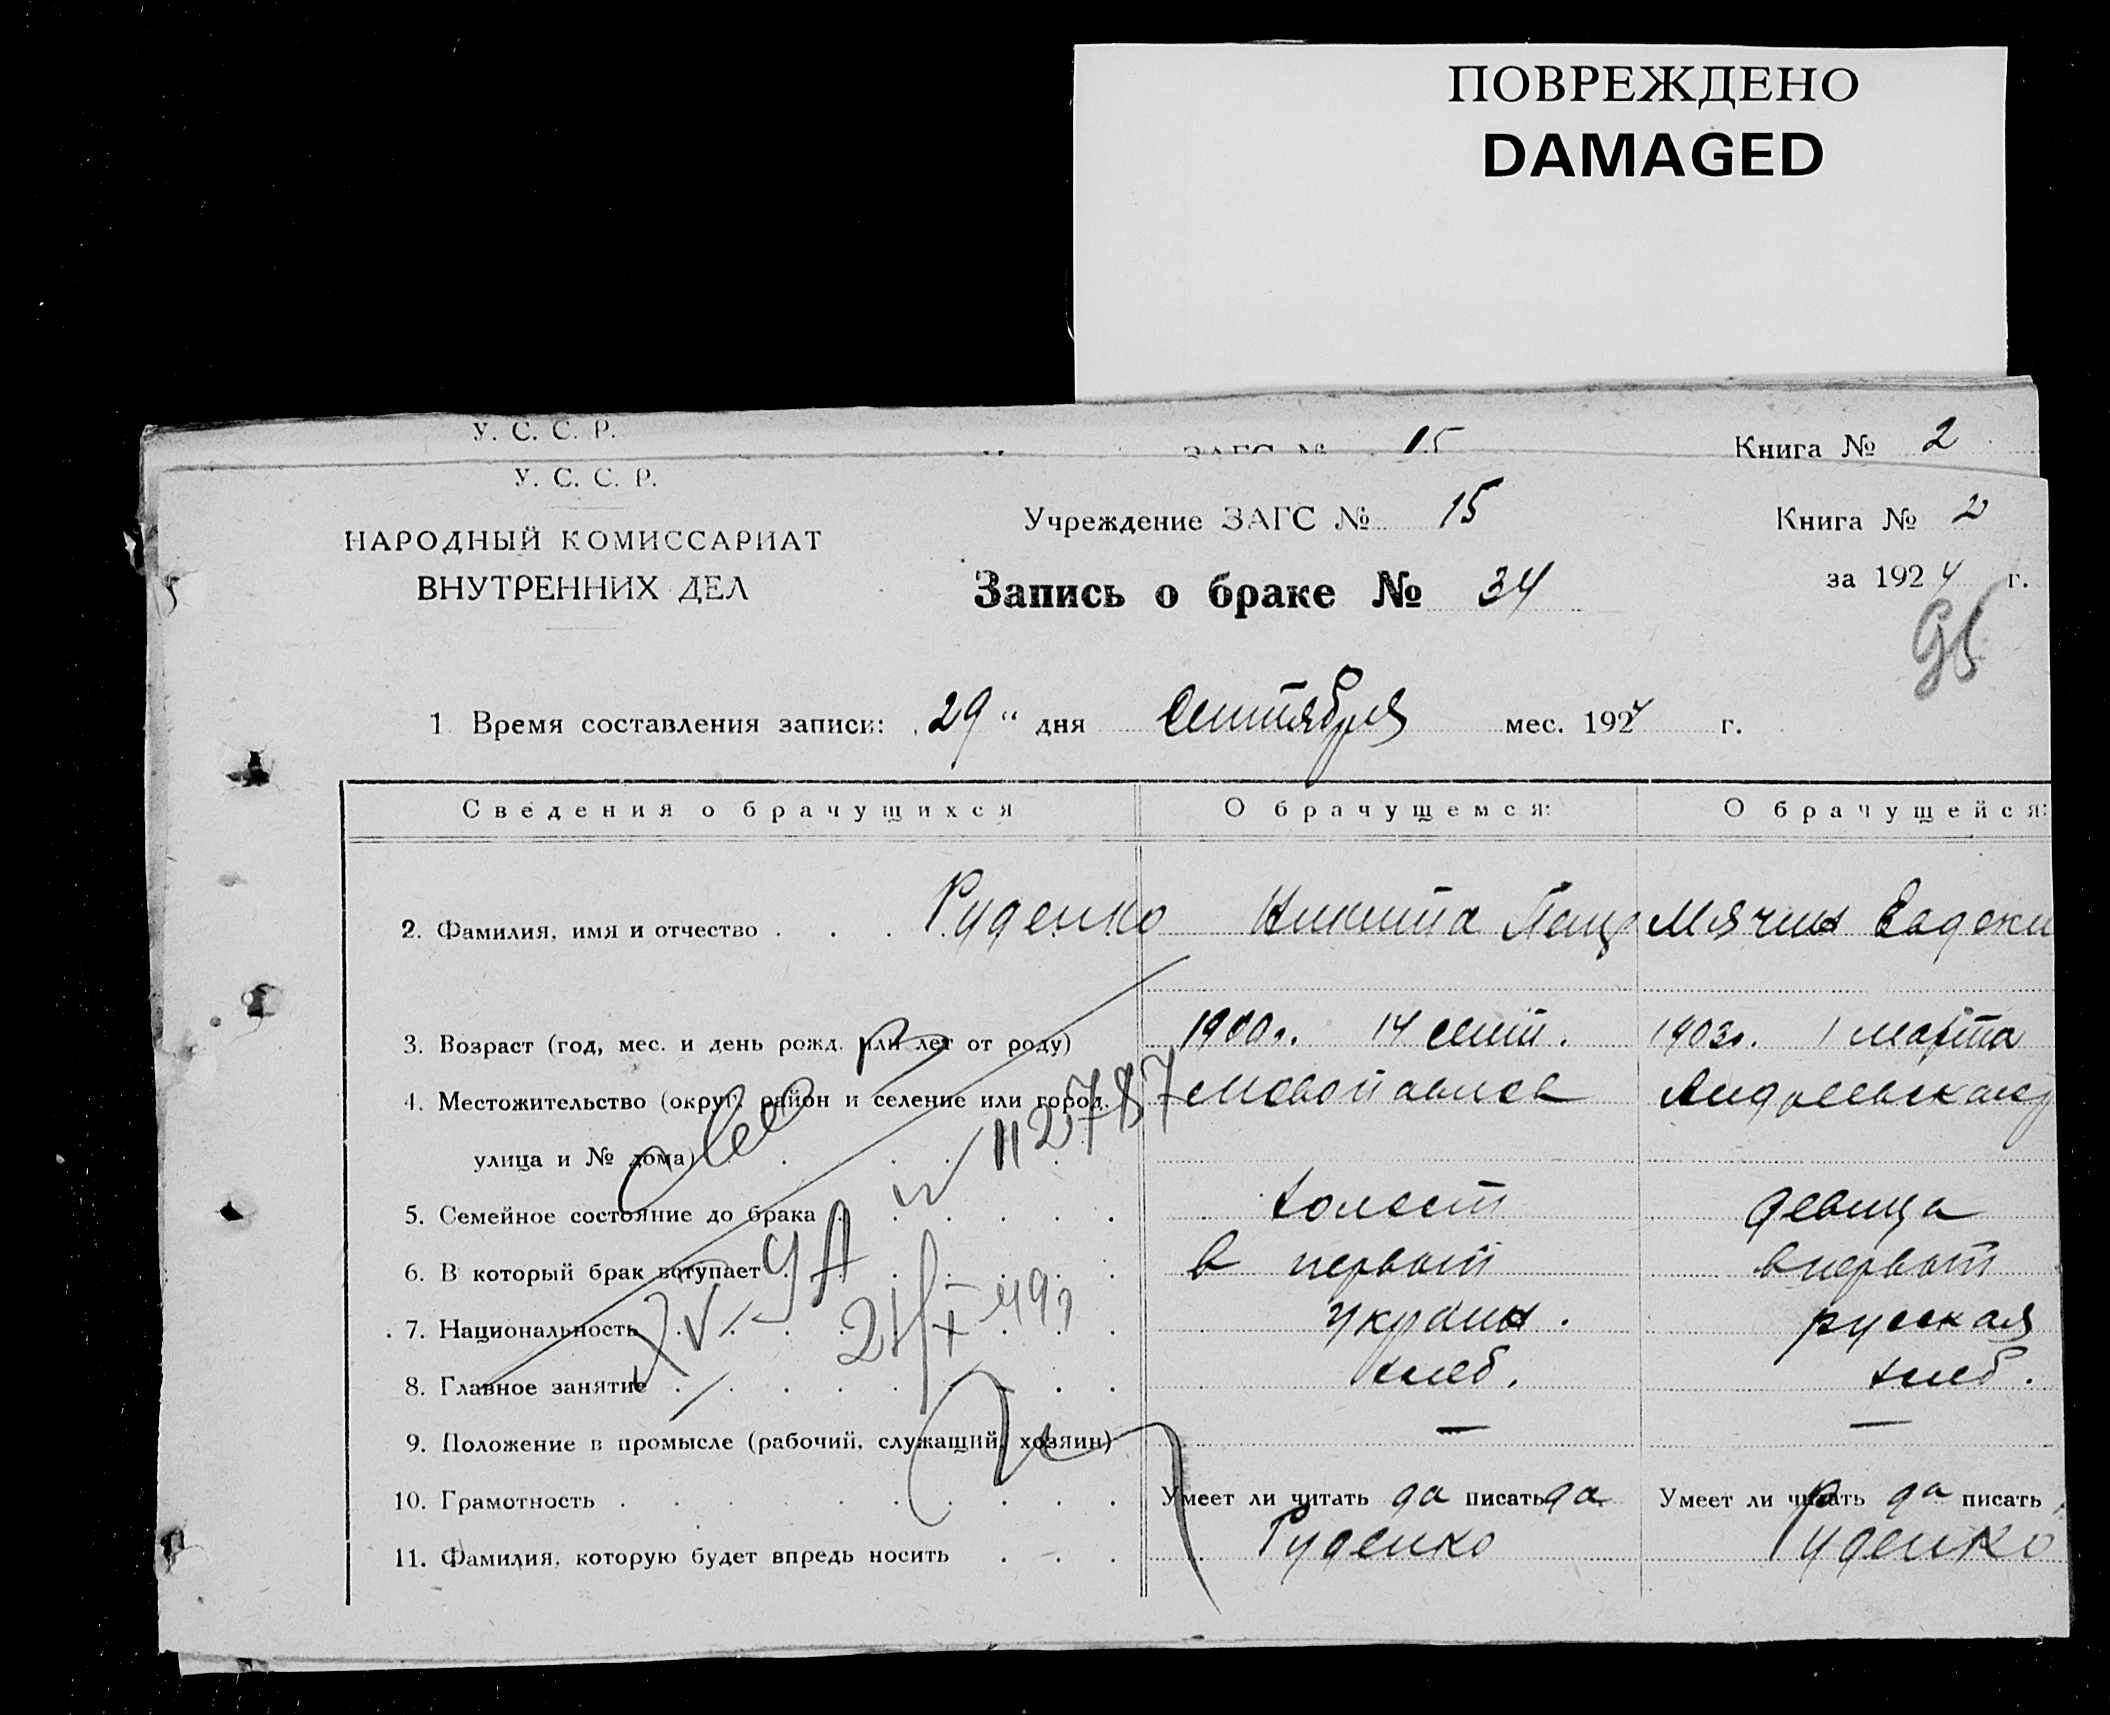 ПОВРЕЖДЕНО
DAMAGED
У. С. С. Р.
ЗАГС № 15
Книга № 2
У. С. С. Р.
НАРОДНЫЙ КОМИССАРИАТ
ВНУТРЕННИХ ДЕЛ
Учреждение ЗАГС № 15
Книга № 2
Запись о браке № 34
за 1924 г.
1 Время составления записи: 29 " дня Сентября мес. 1924 г.
Сведения о брачущихся О брачущемся: О брачущейся:
2. Фамилия, имя и отчество . . . Руденко Никита Мячин Евдоки
3. Возраст (год, мес. и день рожд. или лет от роду) 1900г. 14 сент. 1903г. 1 марта
4. Местожительство (округ, район и селение или город,
улица и № дома)
112787
5. Семейное состояние до брака холост девица
6. В который брак вступает в первый в первый
7. Национальность украин. русская
8. Главное занятие хлеб. хлеб.
9. Положение в промысле (рабочий, служащий, хозяин) — —
10. Грамотность Умеет ли читать да писать да Умеет ли читать да писать
11. Фамилия, которую будет впредь носить . . . Руденко Руденко